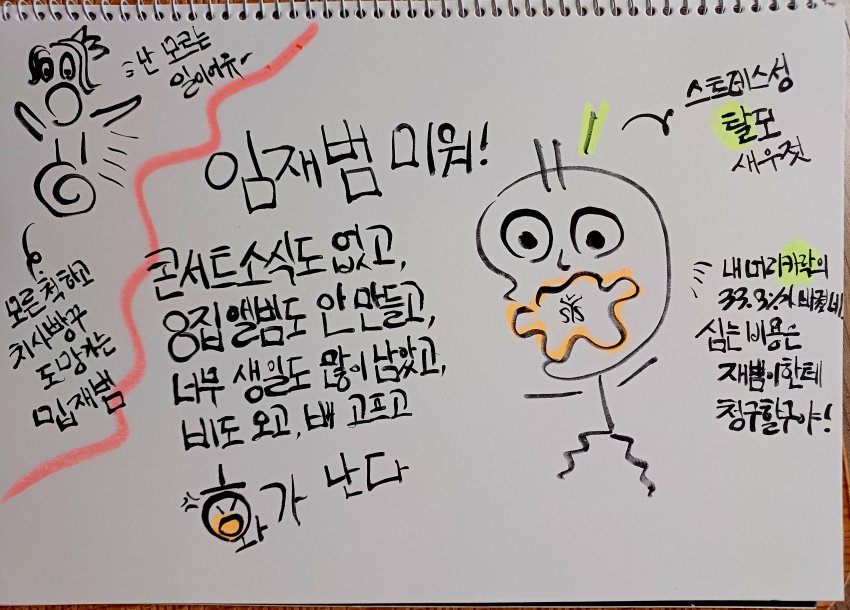 난 모르는
일이어유~
임재범 미워!
콘서트소식도 없고,
8집앨범도 안 만들고,
너무 생일도 많이 남았고,
비도 오고, 배 고프고
화가 난다
모른 척 하고
치사빵꾸
도망가는
밉재범
스트레스성
탈모
새우젓
내 머리카락의
33.3%가 빠졌네.
심는 비용은
재범이한테
청구할구야!